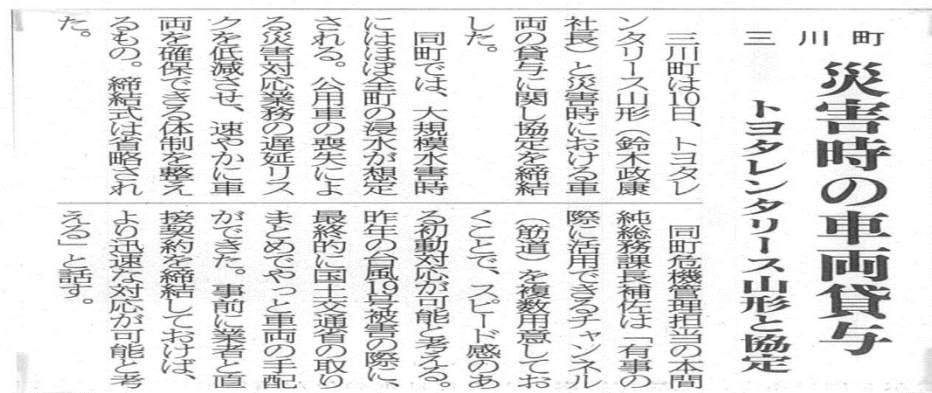 三川町
災害時の車両貸与
トヨタレンタリース山形と協定
三川町は10日、トヨタレ
ンタリース山形（鈴木政康
社長）と災害時における車
両の貸与に関し協定を締結
した。
同町では、大規模水害時
にはほぼ全町の浸水が想定
される。公用車の喪失によ
る災害対応業務の遅延リス
クを低減させ、速やかに車
両を確保できる体制を整え
るもの。締結式は省略され
た。
同町危機管理担当の本間
純総務課長補佐は「有事の
際に活用できるチャンネル
（筋道）を複数用意してお
くことで、スピード感のあ
る初動対応が可能と考える。
昨年の台風19号被害の際に、
最終的に国土交通省の取り
まとめでやっと車両の手配
ができた。事前に業者と直
接契約を締結しておけば、
より迅速な対応が可能と考
える」と話す。